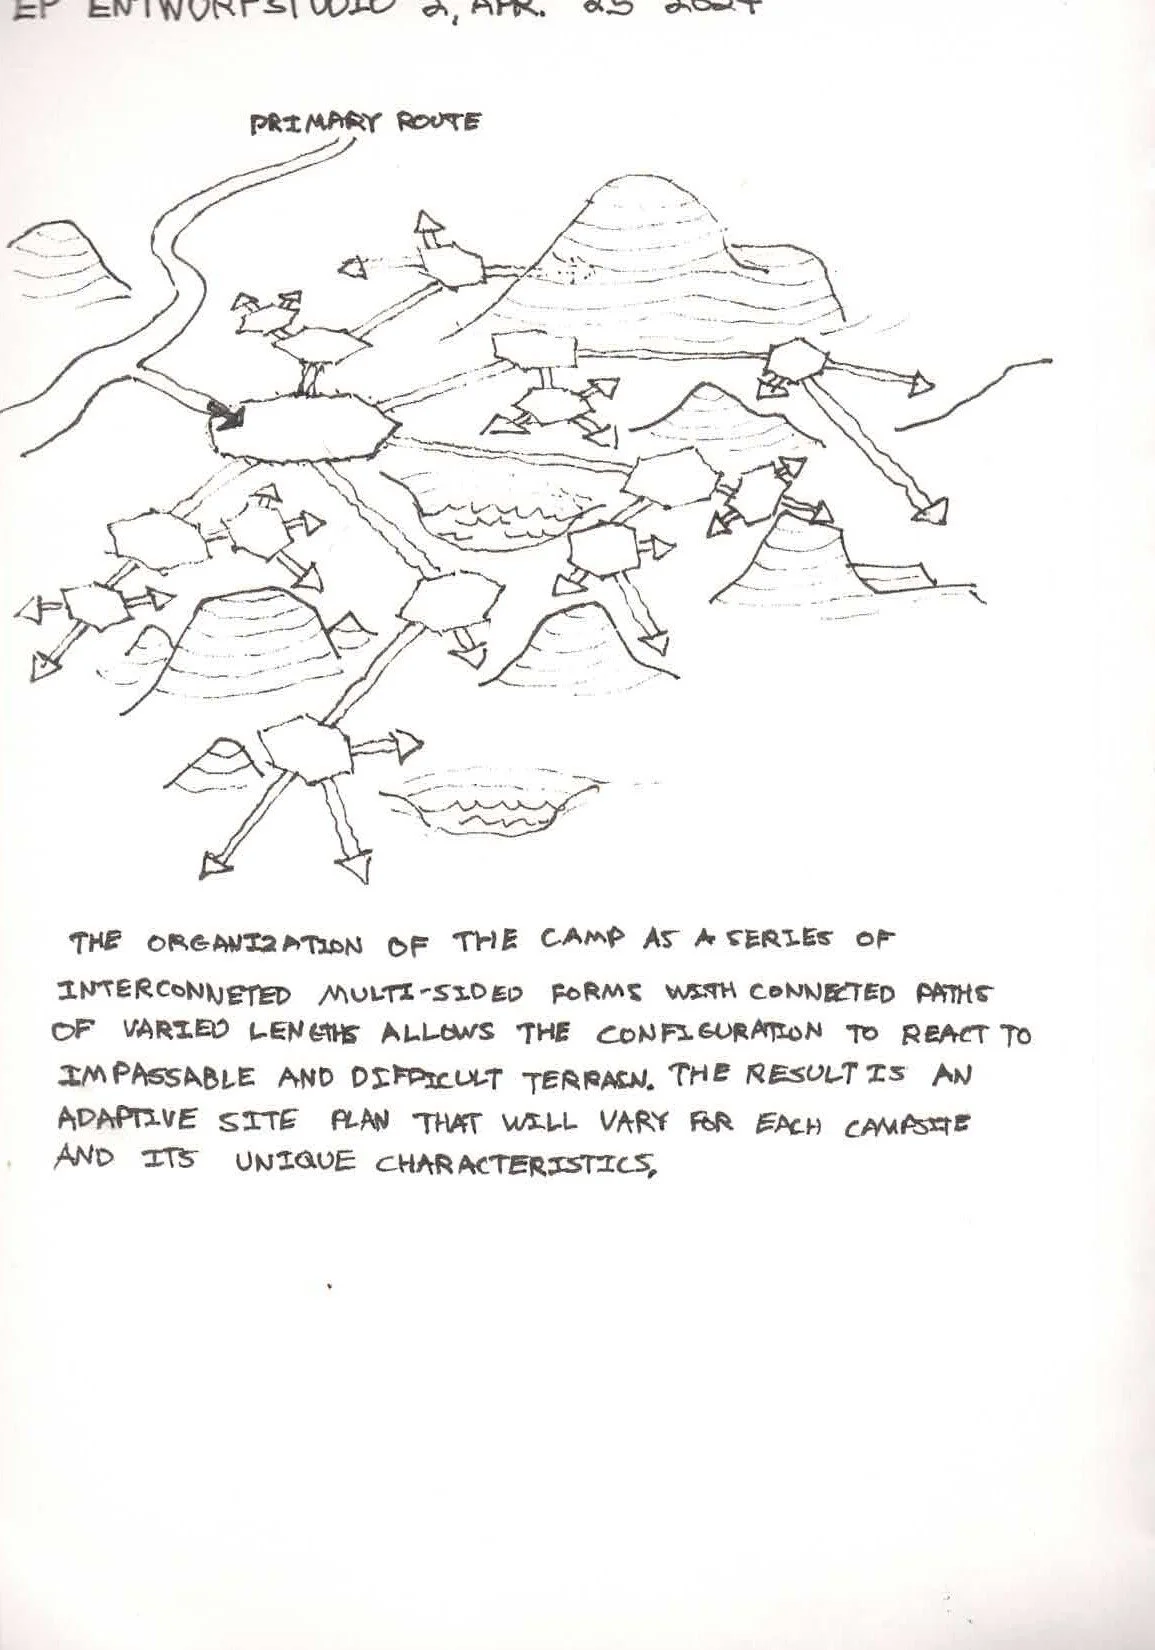 EP ENTWURFSTUDIO 2, APR. 25 2024
PRIMARY ROUTE
THE ORGANIZATION OF THE CAMP AS A SERIES OF
INTERCONNETED MULTI-SIDED FORMS WITH CONNECTED PATHS
OF VARIED LENGTHS ALLOWS THE CONFIGURATION TO REACT TO
IMPASSABLE AND DIFFICULT TERRAIN. THE RESULT IS AN
ADAPTIVE SITE PLAN THAT WILL VARY FOR EACH CAMPSITE
AND ITS UNIQUE CHARACTERISTICS.